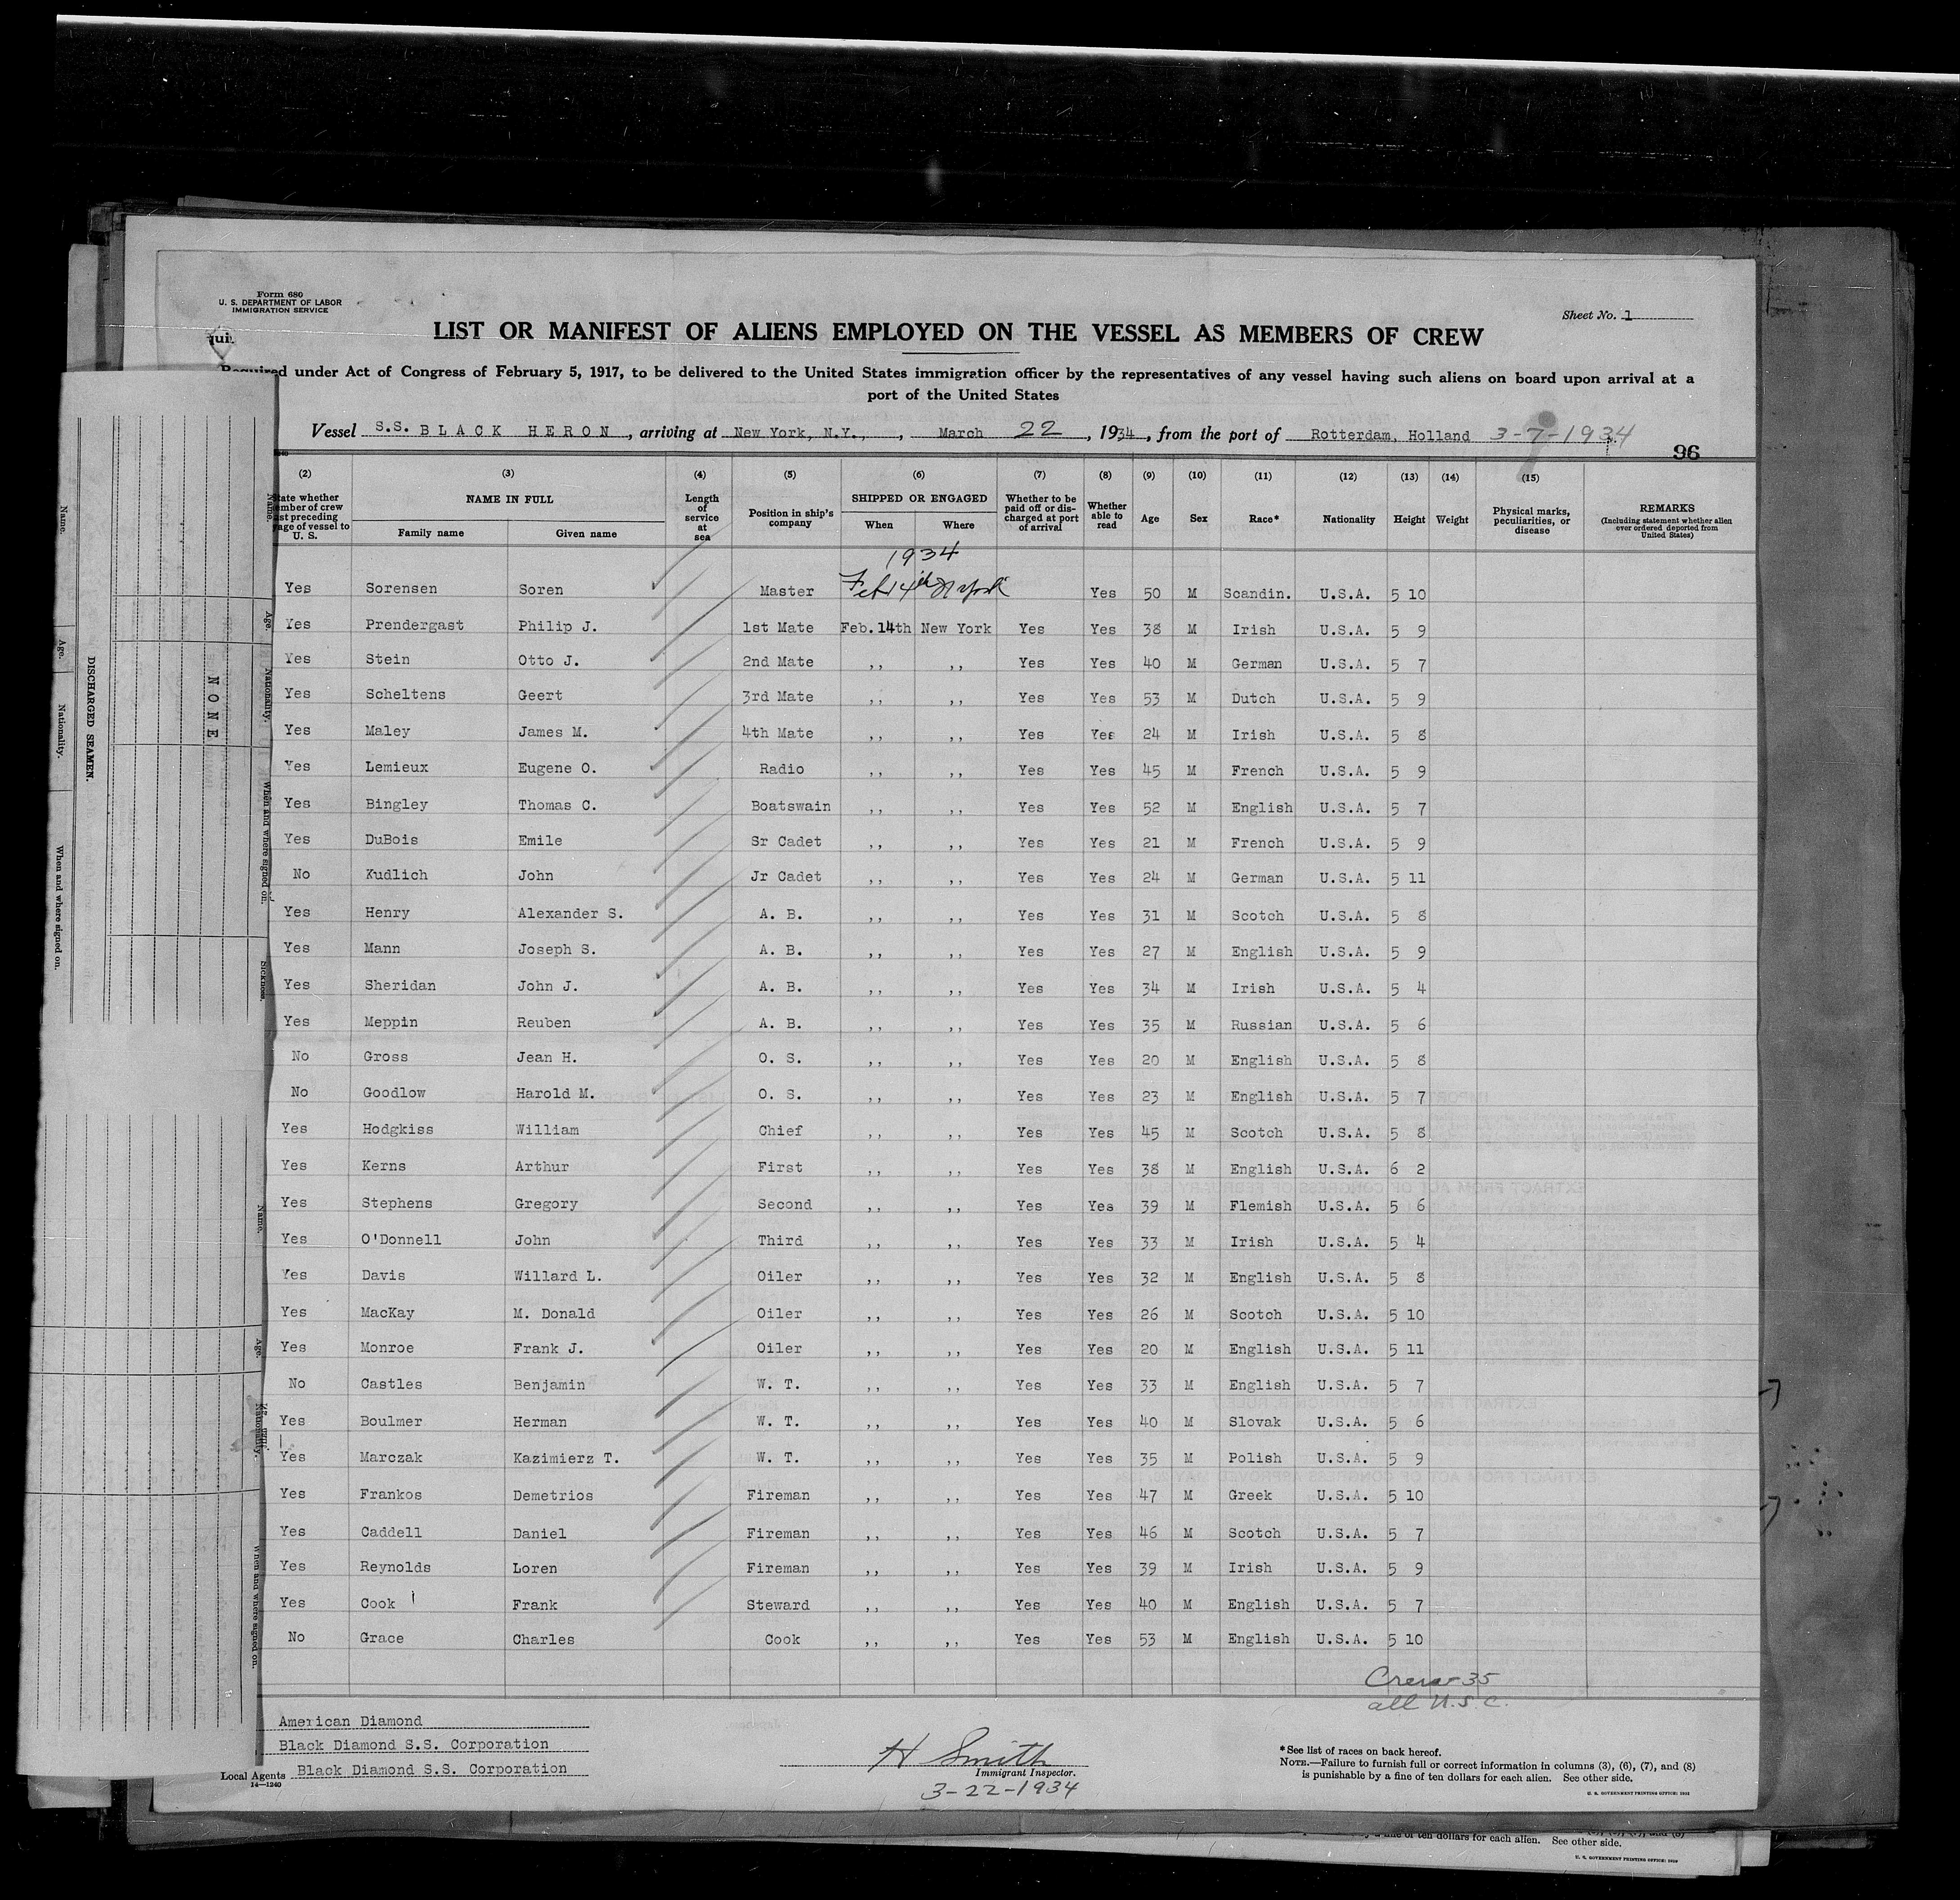 Form 680
U. S. DEPARTMENT OF LABOR
IMMIGRATION SERVICE
Sheet No. 1
LIST OR MANIFEST OF ALIENS EMPLOYED ON THE VESSEL AS MEMBERS OF CREW
Required under Act of Congress of February 5, 1917, to be delivered to the United States immigration officer by the representatives of any vessel having such aliens on board upon arrival at a
port of the United States
Vessel S.S. BLACK HERON, arriving at New York, N.Y., , March 22, 1934, from the port of Rotterdam, Holland 3-7-1934
96
(2) (3) (4) (5) (6) (7) (8) (9) (10) (11) (12) (13) (14) (15)
State whether member of crew last preceding voyage of vessel to U. S. NAME IN FULL Family name Given name Length of service at sea Position in ship's company SHIPPED OR ENGAGED When Where Whether to be paid off or discharged at port of arrival Whether able to read Age Sex Race* Nationality Height Weight Physical marks, peculiarities, or disease REMARKS (Including statement whether alien ever ordered deported from United States)
1934
Yes Sorensen Soren Master Feb 14th N York Yes 50 M Scandin. U.S.A. 5 10
Yes Prendergast Philip J. 1st Mate Feb.14th New York Yes Yes 38 M Irish U.S.A. 5 9
Yes Stein Otto J. 2nd Mate ,, ,, Yes Yes 40 M German U.S.A. 5 7
Yes Scheltens Geert 3rd Mate ,, ,, Yes Yes 53 M Dutch U.S.A. 5 9
Yes Maley James M. 4th Mate ,, ,, Yes Yes 24 M Irish U.S.A. 5 8
Yes Lemieux Eugene O. Radio ,, ,, Yes Yes 45 M French U.S.A. 5 9
Yes Bingley Thomas C. Boatswain ,, ,, Yes Yes 52 M English U.S.A. 5 7
Yes DuBois Emile Sr Cadet ,, ,, Yes Yes 21 M French U.S.A. 5 9
No Kudlich John Jr Cadet ,, ,, Yes Yes 24 M German U.S.A. 5 11
Yes Henry Alexander S. A. B. ,, ,, Yes Yes 31 M Scotch U.S.A. 5 8
Yes Mann Joseph S. A. B. ,, ,, Yes Yes 27 M English U.S.A. 5 9
Yes Sheridan John J. A. B. ,, ,, Yes Yes 34 M Irish U.S.A. 5 4
Yes Meppin Reuben A. B. ,, ,, Yes Yes 35 M Russian U.S.A. 5 6
No Gross Jean H. O. S. ,, ,, Yes Yes 20 M English U.S.A. 5 8
No Goodlow Harold M. O. S. ,, ,, Yes Yes 23 M English U.S.A. 5 7
Yes Hodgkiss William Chief ,, ,, Yes Yes 45 M Scotch U.S.A. 5 8
Yes Kerns Arthur First ,, ,, Yes Yes 38 M English U.S.A. 6 2
Yes Stephens Gregory Second ,, ,, Yes Yes 39 M Flemish U.S.A. 5 6
Yes O'Donnell John Third ,, ,, Yes Yes 33 M Irish U.S.A. 5 4
Yes Davis Willard L. Oiler ,, ,, Yes Yes 32 M English U.S.A. 5 8
Yes MacKay M. Donald Oiler ,, ,, Yes Yes 26 M Scotch U.S.A. 5 10
Yes Monroe Frank J. Oiler ,, ,, Yes Yes 20 M English U.S.A. 5 11
No Castles Benjamin W. T. ,, ,, Yes Yes 33 M English U.S.A. 5 7
Yes Boulmer Herman W. T. ,, ,, Yes Yes 40 M Slovak U.S.A. 5 6
Yes Marczak Kazimierz T. W. T. ,, ,, Yes Yes 35 M Polish U.S.A. 5 9
Yes Frankos Demetrios Fireman ,, ,, Yes Yes 47 M Greek U.S.A. 5 10
Yes Caddell Daniel Fireman ,, ,, Yes Yes 46 M Scotch U.S.A. 5 7
Yes Reynolds Loren Fireman ,, ,, Yes Yes 39 M Irish U.S.A. 5 9
Yes Cook Frank Steward ,, ,, Yes Yes 40 M English U.S.A. 5 7
No Grace Charles Cook ,, ,, Yes Yes 53 M English U.S.A. 5 10
Crew 35
all U.S.C.
American Diamond
Black Diamond S.S. Corporation
Local Agents Black Diamond S.S. Corporation
14—1240
H Smith
Immigrant Inspector.
3-22-1934
*See list of races on back hereof.
NOTE.—Failure to furnish full or correct information in columns (3), (6), (7), and (8)
is punishable by a fine of ten dollars for each alien. See other side.
U. S. GOVERNMENT PRINTING OFFICE: 1932
ten dollars for each alien. See other side.
DISCHARGED SEAMEN.
Name.
Age.
Nationality.
When and where signed on.
NONE
Name.
Age.
Nationality.
When and where signed on.
Sickness.
Name.
Age.
Nationality.
When and where signed on.